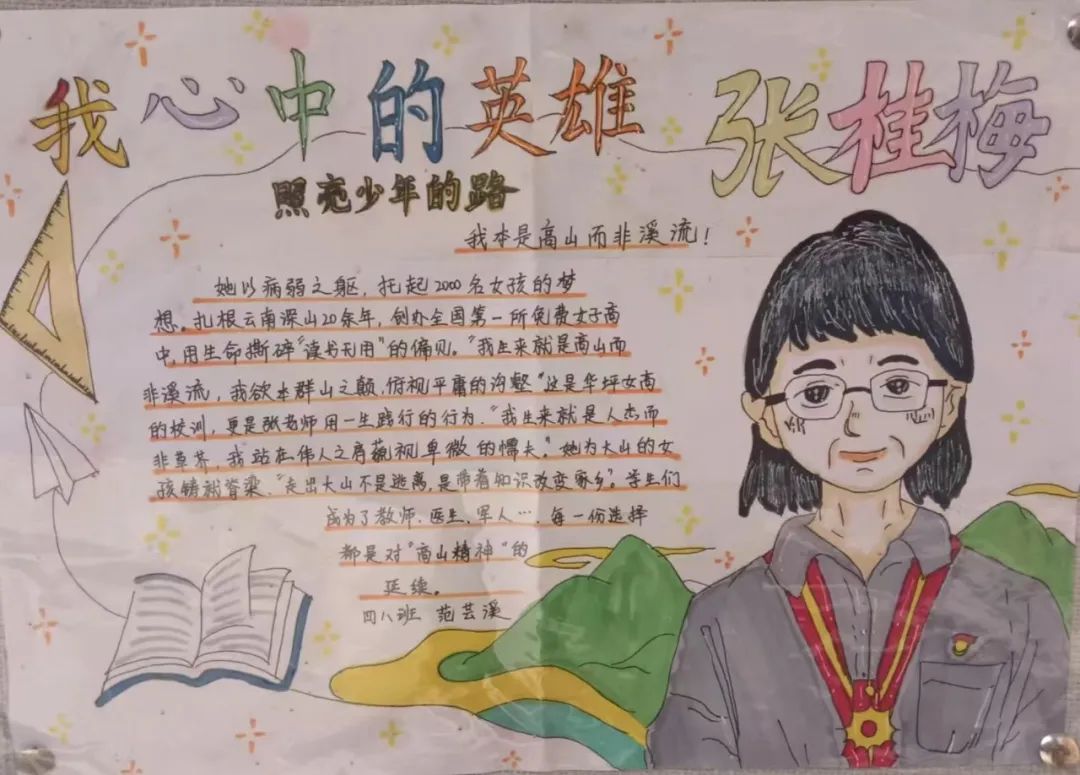 我心中的英雄 张桂梅
照亮少年的路
我本是高山而非溪流！
她以病弱之躯，托起2000名女孩的梦
想。扎根云南深山20余年，创办全国第一所免费女子高
中，用生命撕碎“读书无用”的偏见。“我生来就是高山而
非溪流，我欲本群山之巅，俯视平庸的沟壑”这是华坪女高
的校训，更是张老师用一生践行的行为“我生来就是人杰而
非草芥，我站在伟人之肩藐视卑微的懦夫”。她为大山的女
孩铸就脊梁、“走出大山不是逃离，是带着知识改变家乡”。学生们
成为了教师、医生、军人…，每一份选择
都是对“高山精神”的
延续。
四八班 范芸溪